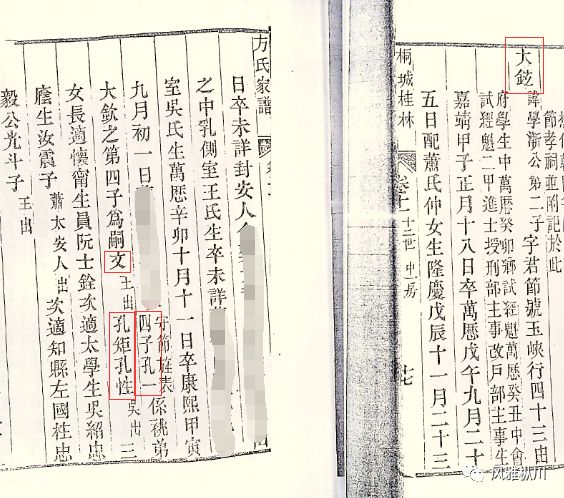 節孝祠並附記於此
大鉉
諱學漸公第二子字君節號玉峽行四十三由
府學生中萬歷癸卯鄉試經魁萬歷癸丑中會
試經魁二甲進士授刑部主事改戶部主事生
嘉靖甲子正月十八日卒萬歷戊午九月二十
五日配蕭氏仲女生隆慶戊辰十一月二十三
桐城桂林 卷十一 十二世中房 十七
方氏家譜
日卒未詳封安人
之中乳側室王氏生卒未詳
室吳氏生萬歷辛卯十月十一日卒康熙甲寅
九月初一日 守節旌表 四子孔一係祧弟
大欽之第四子為嗣文王出孔矩孔性吳出三
女長適懷甯生員阮士銓次適太學生吳紹忠
廕生汝震子蕭太安人出次適知縣左國柱忠
毅公光斗子王出
风雅枞川